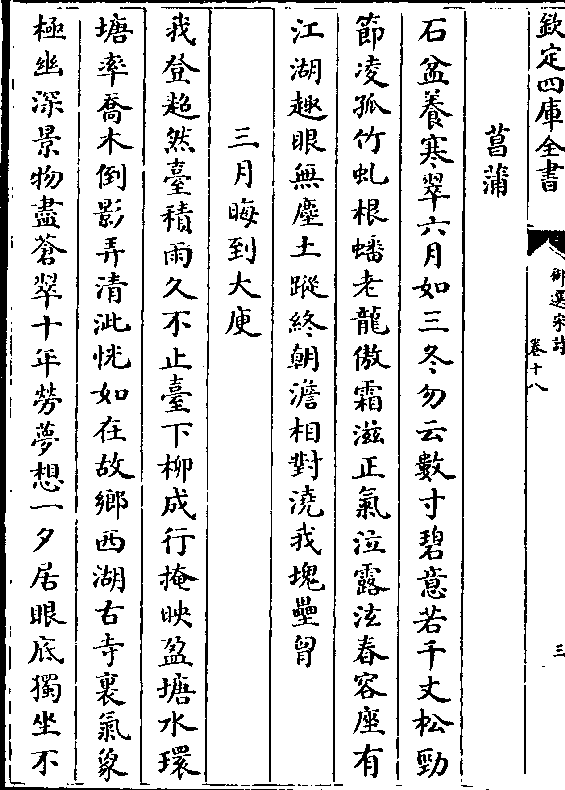 欽定四庫全書
御選宋詩
卷十八
三
菖蒲
石盆養寒翠六月如三冬勿云數寸碧意若千丈松勁
節凌孤竹虬根蟠老龍傲霜滋正氣泣露泫春容座有
江湖趣眼無塵土蹤終朝澹相對澆我塊壘胷
三月晦到大庾
我登超然臺積雨久不止臺下柳成行掩映盈塘水環
塘率喬木倒影弄清泚恍如在故鄉西湖古寺裏氣象
極幽深景物盡蒼翠十年勞夢想一夕居眼底獨坐不